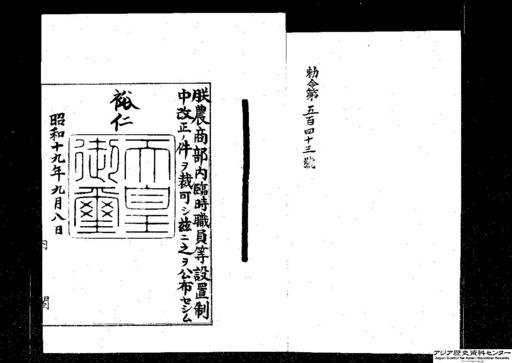 勅令第五百四十三號
朕農商部內臨時職員等設置制
中改正ノ件ヲ裁可シ玆ニ之ヲ公布セシム
裕仁
天皇御璽
昭和十九年九月八日
內閣
アジア歴史資料センター
Japan Center for Asian Historical Records